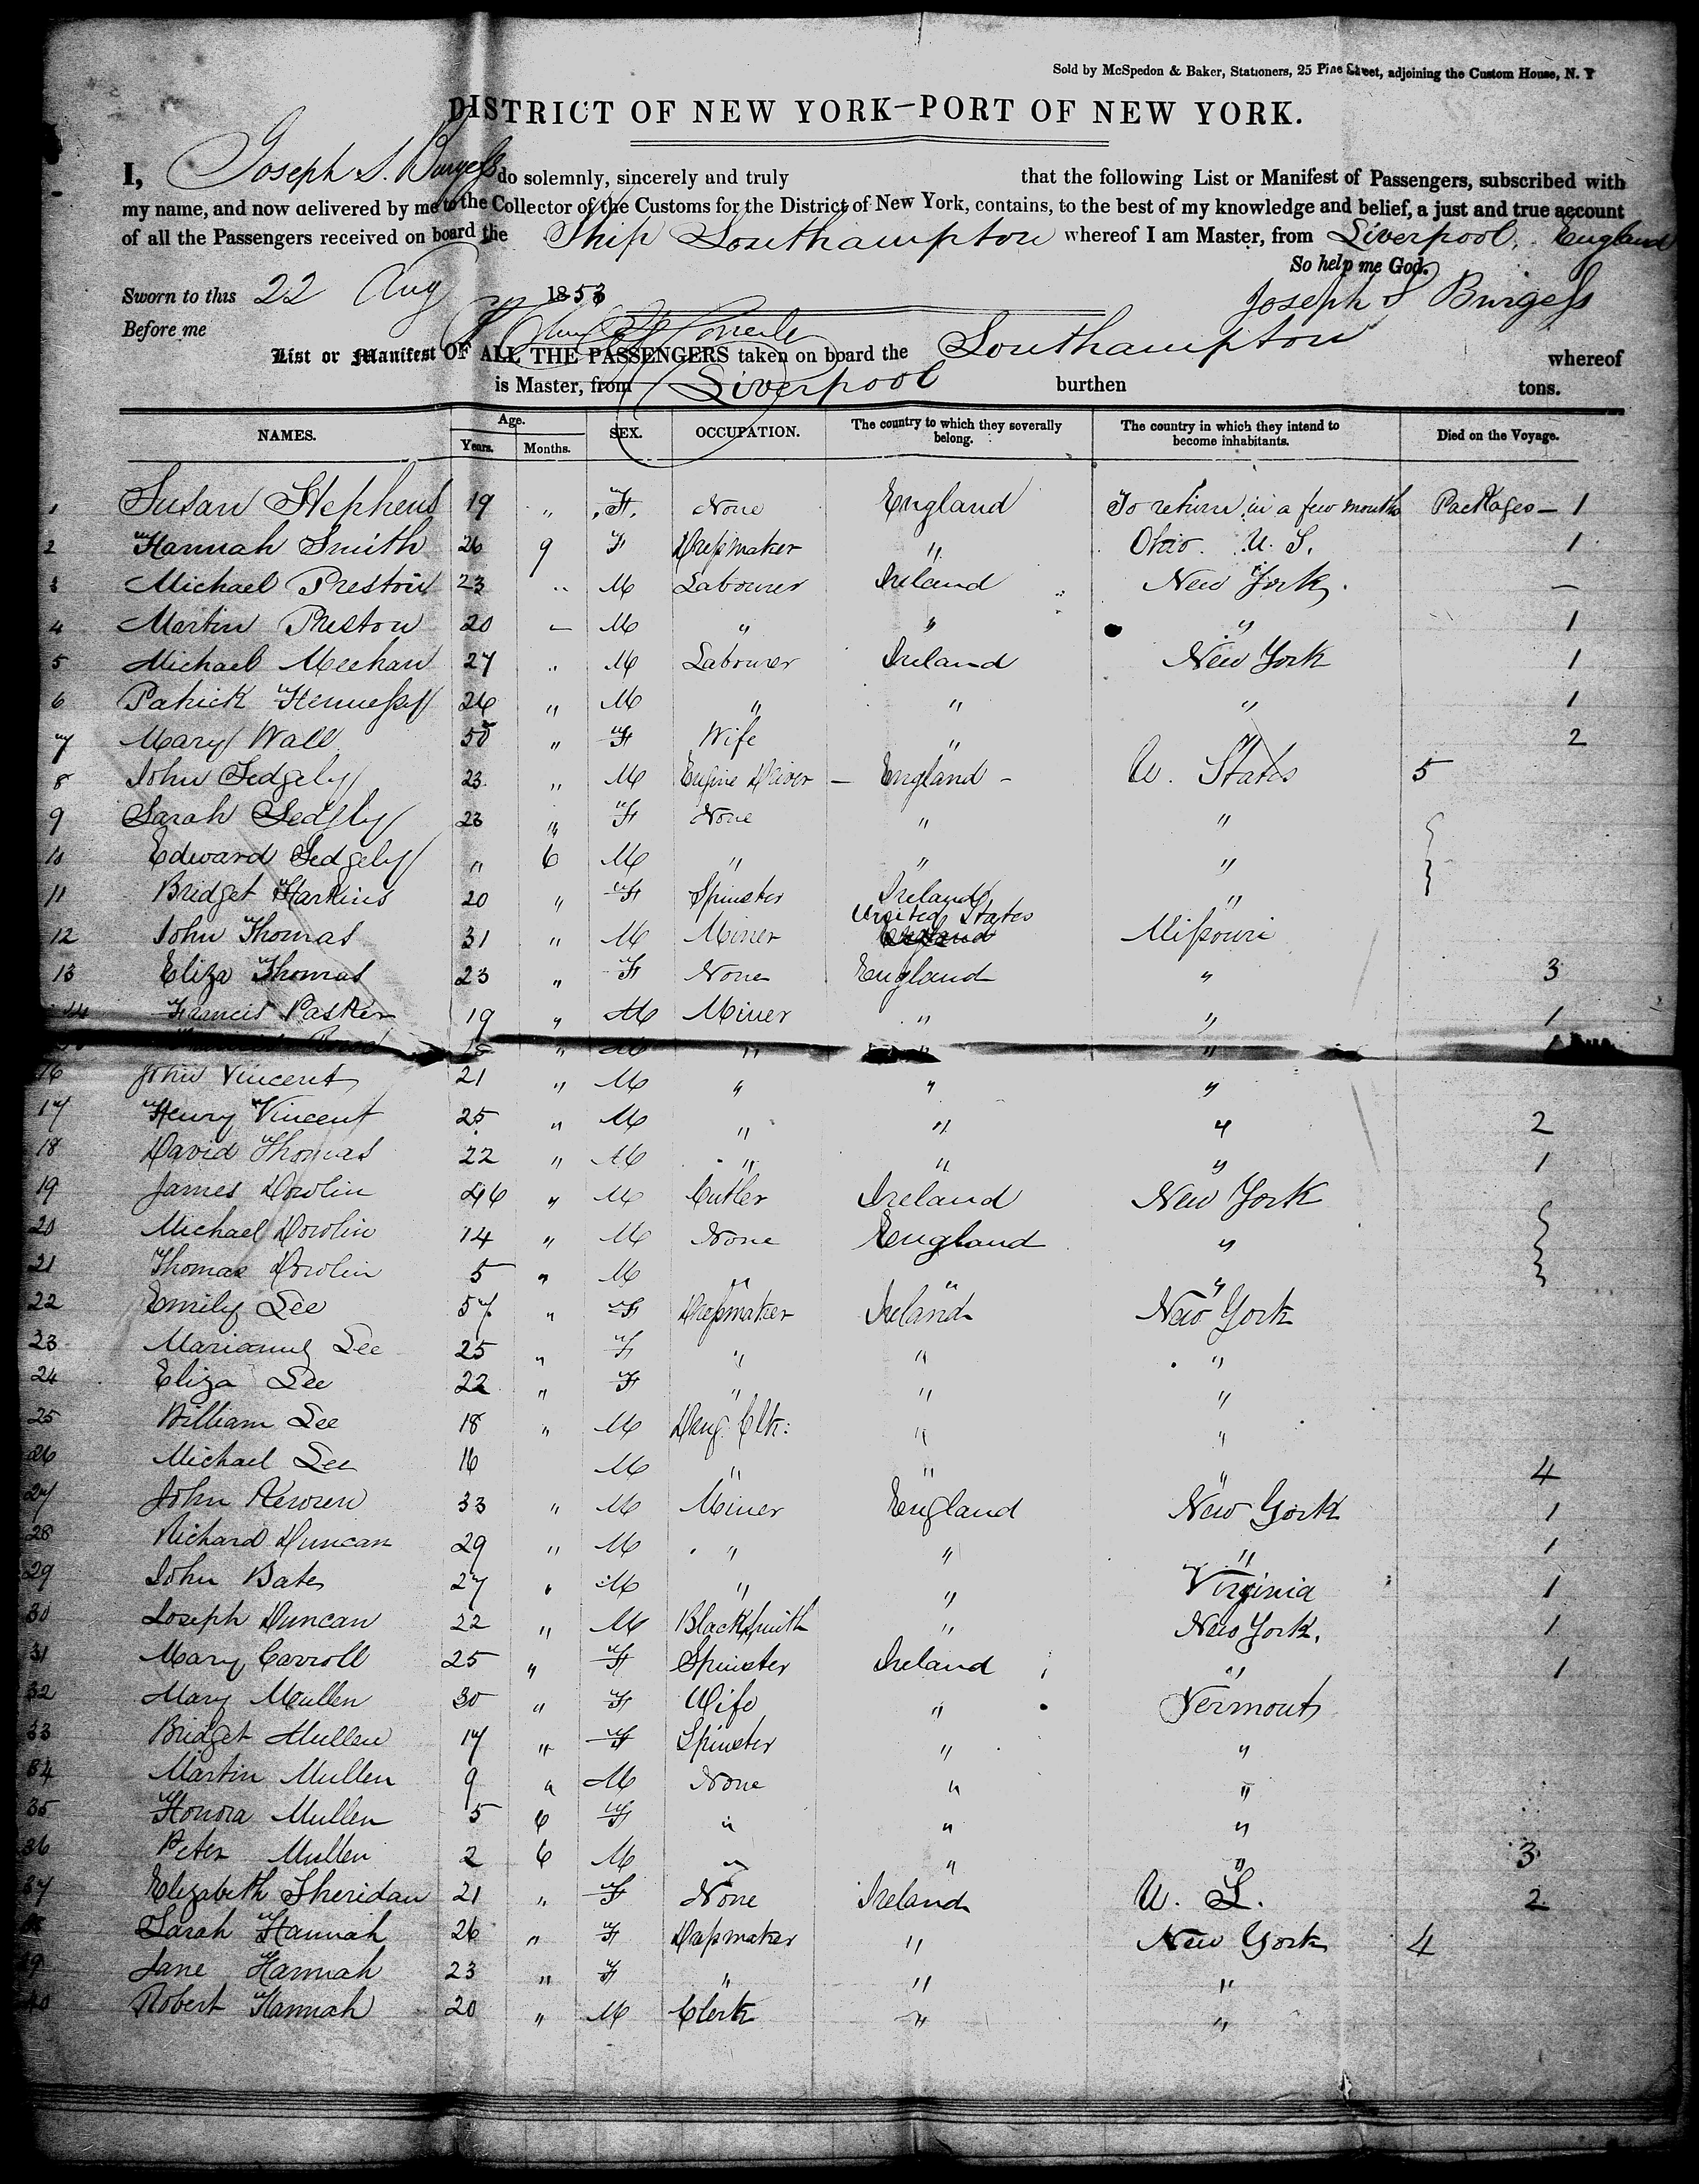 Sold by McSpedon & Baker, Stationers, 25 Pine Street, adjoining the Custom House, N. Y
DISTRICT OF NEW YORK—PORT OF NEW YORK.
I, Joseph S. Burgess do solemnly, sincerely and truly that the following List or Manifest of Passengers, subscribed with
my name, and now delivered by me to the Collector of the Customs for the District of New York, contains, to the best of my knowledge and belief, a just and true account
of all the Passengers received on board the Ship Southampton whereof I am Master, from Liverpool, England
So help me God.
Sworn to this 22 Aug 1853 Joseph S Burgess
Before me
List or Manifest OF ALL THE PASSENGERS taken on board the Southampton whereof
is Master, from Liverpool burthen tons.
NAMES. Age. Years. Months. SEX. OCCUPATION. The country to which they severally belong. The country in which they intend to become inhabitants. Died on the Voyage.
1 Susan Stephens 19 " F. None England To return in a few months Packages — 1
2 Hannah Smith 26 9 F Dressmaker " Ohio. U. S. 1
3 Michael Preston 23 " M Labourer Ireland New York. —
4 Martin Preston 20 — M " " " 1
5 Michael Meehan 27 " M Labourer Ireland New York 1
6 Patrick Hennessy 26 " M " " " 1
7 Mary Wall 50 " F Wife " " 2
8 John Sedgely 23 " M Engine Driver — England — U. States 5
9 Sarah Sedgly 23 " F None " "
10 Edward Sedgely " 6 M " " "
11 Bridget Harkins 20 " F Spinster Ireland "
12 John Thomas 31 " M Miner United States England Missouri
13 Eliza Thomas 23 " F None England " 3
14 Francis Pasker 19 " M Miner " " 1
" M " " "
16 John Vincent 21 " M " " "
17 Henry Vincent 25 " M " " " 2
18 David Thomas 22 " M " " " 1
19 James Dowlin 46 " M Cutler Ireland New York
20 Michael Dowlin 14 " M None England "
21 Thomas Dowlin 5 " M " " "
22 Emily Lee 57 " F Dressmaker Ireland New York
23 Marianne Lee 25 " F " " "
24 Eliza Lee 22 " F " " "
25 William Lee 18 " M Drug. Clk: " "
26 Michael Lee 16 M " " " 4
27 John 33 " M Miner England New York 1
28 Richard Duncan 29 " M " " " 1
29 John Bates 27 " M " " Virginia 1
30 Joseph Duncan 22 " M Blacksmith " New York. 1
31 Mary Carroll 25 " F Spinster Ireland " 1
32 Mary Mullen 30 " F Wife " Vermont
33 Bridget Mullen 17 " F Spinster " "
34 Martin Mullen 9 " M None " "
35 Honora Mullen 5 6 F " " "
36 Peter Mullen 2 6 M " " " 3
37 Elizabeth Sheridan 21 " F None Ireland U. S. 2
Sarah Hannah 26 " F Dressmaker " New York 4
39 Jane Hannah 23 " F " " "
40 Robert Hannah 20 " M Clerk " "